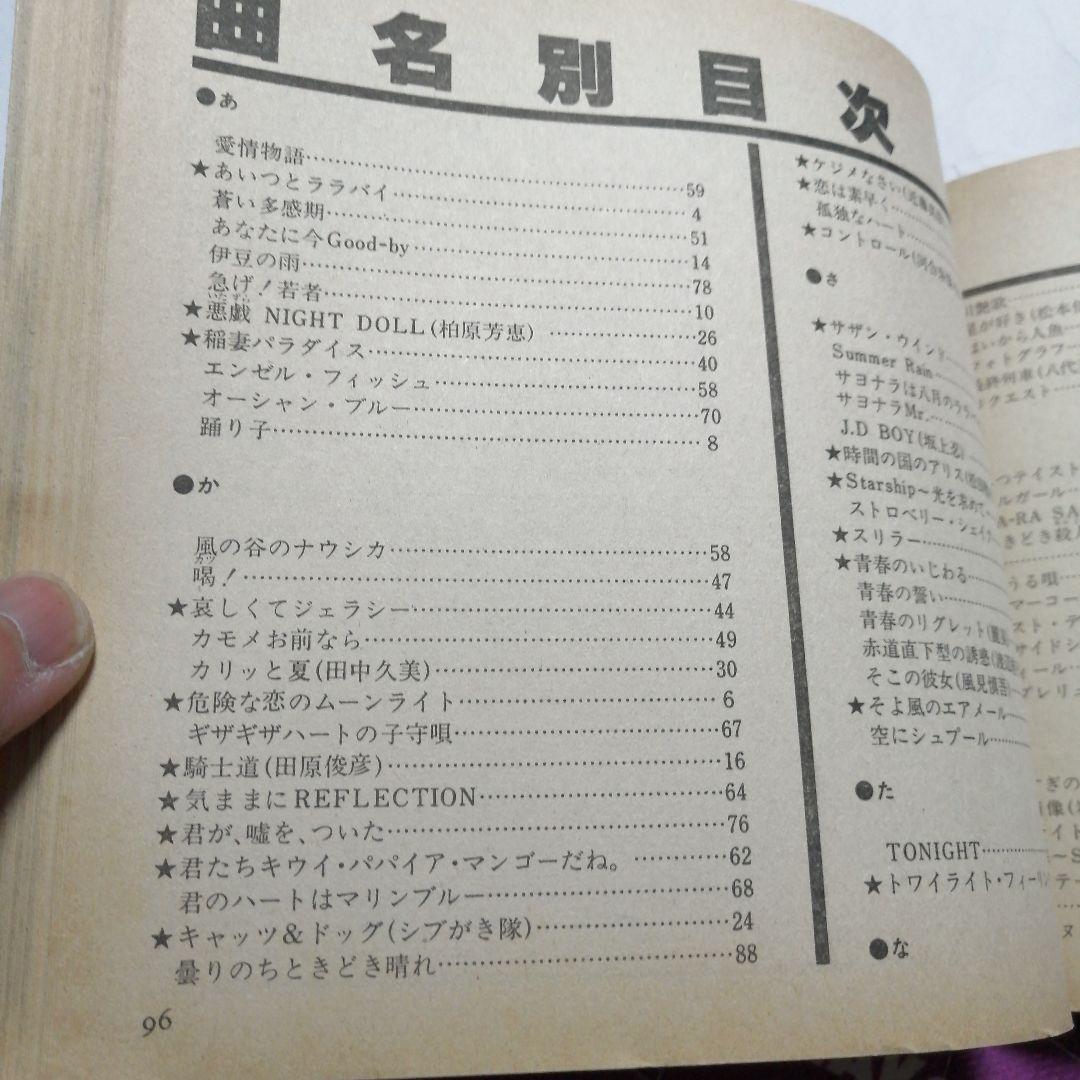 曲名別目次
●あ
愛情物語……59
★あいつとララバイ……4
蒼い多感期……51
あなたに今Good-by……14
伊豆の雨……78
急げ！若者……10
いたずら
★悪戯 NIGHT DOLL(柏原芳恵)……26
★稲妻パラダイス……40
エンゼル・フィッシュ……58
オーシャン・ブルー……70
踊り子……8
●か
風の谷のナウシカ……58
カツ
喝！……47
★哀しくてジェラシー……44
カモメお前なら……49
カリッと夏(田中久美)……30
★危険な恋のムーンライト……6
ギザギザハートの子守唄……67
★騎士道(田原俊彦)……16
★気ままにREFLECTION……64
★君が、嘘を、ついた……76
★君たちキウイ・パパイア・マンゴーだね。……62
君のハートはマリンブルー……68
★キャッツ&ドッグ(シブがき隊)……24
曇りのちときどき晴れ……88
96
★ケジメなさい(近藤
★恋は素早く……
孤独なハート……
★コントロール(河合
●さ
★サザン・ウインド
Summer Rain……
サヨナラは八月の
サヨナラMr.……
J.D BOY(坂上忍)
★時間の国のアリス
★Starship～光を求めて～
ストロベリー・
★スリラー……
★青春のいじわる……
青春の誓い……
青春のリグレット(
赤道直下型の誘惑(
そこの彼女(風見慎吾)
★そよ風のエアメール……
空にシュプール……
●た
TONIGHT……
★トワイライト・フィーリン
●な
が好き(松本
いから人魚……
ォトグラフ……
終列車(八代
クエスト……
つテイスト
ルガール……
A-RA SA
きどき殺人
うる唄……
マーコー
スト・テ
サイドシ
ィール……
プレリュ
ぎの
像(
イト
～S
テー
ヌ